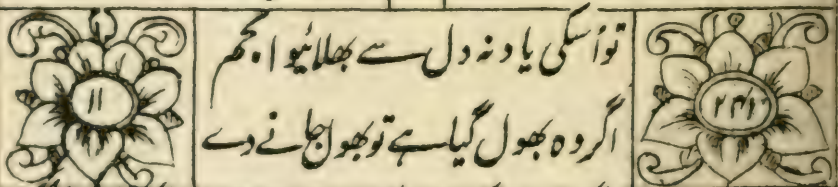 تو اُسکی یاد نہ دل سے بھلائیو انجم
اگر وہ بھول گیا ہے تو بھول جانے دے
۱۱